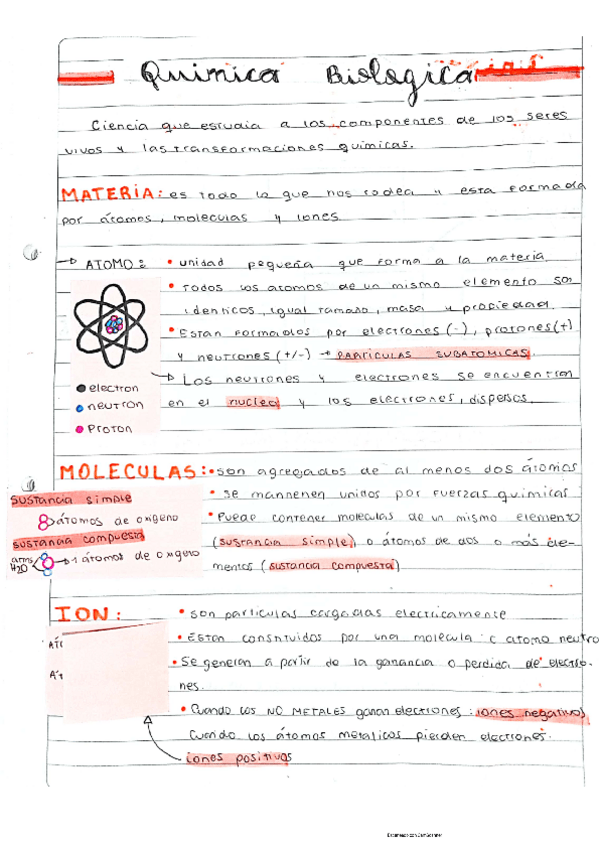 Quimica Biologica
Ciencia que estudia a los componentes de los seres
vivos y las transformaciones quimicas.
MATERIA: es todo lo que nos rodea y esta formada
por átomos, moleculas y iones
ATOMO: • unidad pequeña que forma a la materia
• Todos los atomos de un mismo elemento son
identicos, igual tamaño, masa y propiedad
• Estan formados por electrones (-), protones (+)
y neutrones (+/-) → PARTICULAS SUBATOMICAS.
Los neutrones y electrones se encuentran
en el nucleo y los electrones, dispersos.
electron
neutron
Proton
MOLECULAS: • son agregados de al menos dos átomos
• Se mantienen unidos por fuerzas quimicas
• Puede contener moleculas de un mismo elemento
(sustancia simple), o átomos de dos o más ele-
mentos (sustancia compuesta)
sustancia simple
átomos de oxigeno
sustancia compuesta
H2O
1 átomos de oxigeno
ION: • son particulas cargadas electricamente
• Estan constituidos por una molecula o atomo neutro
• Se generan a partir de la ganancia o perdida de electro-
nes.
• Cuando los NO METALES ganan electrones: iones negativos
Cuando los átomos metalicos pierden electrones.
iones positivos
Escaneado con CamScanner